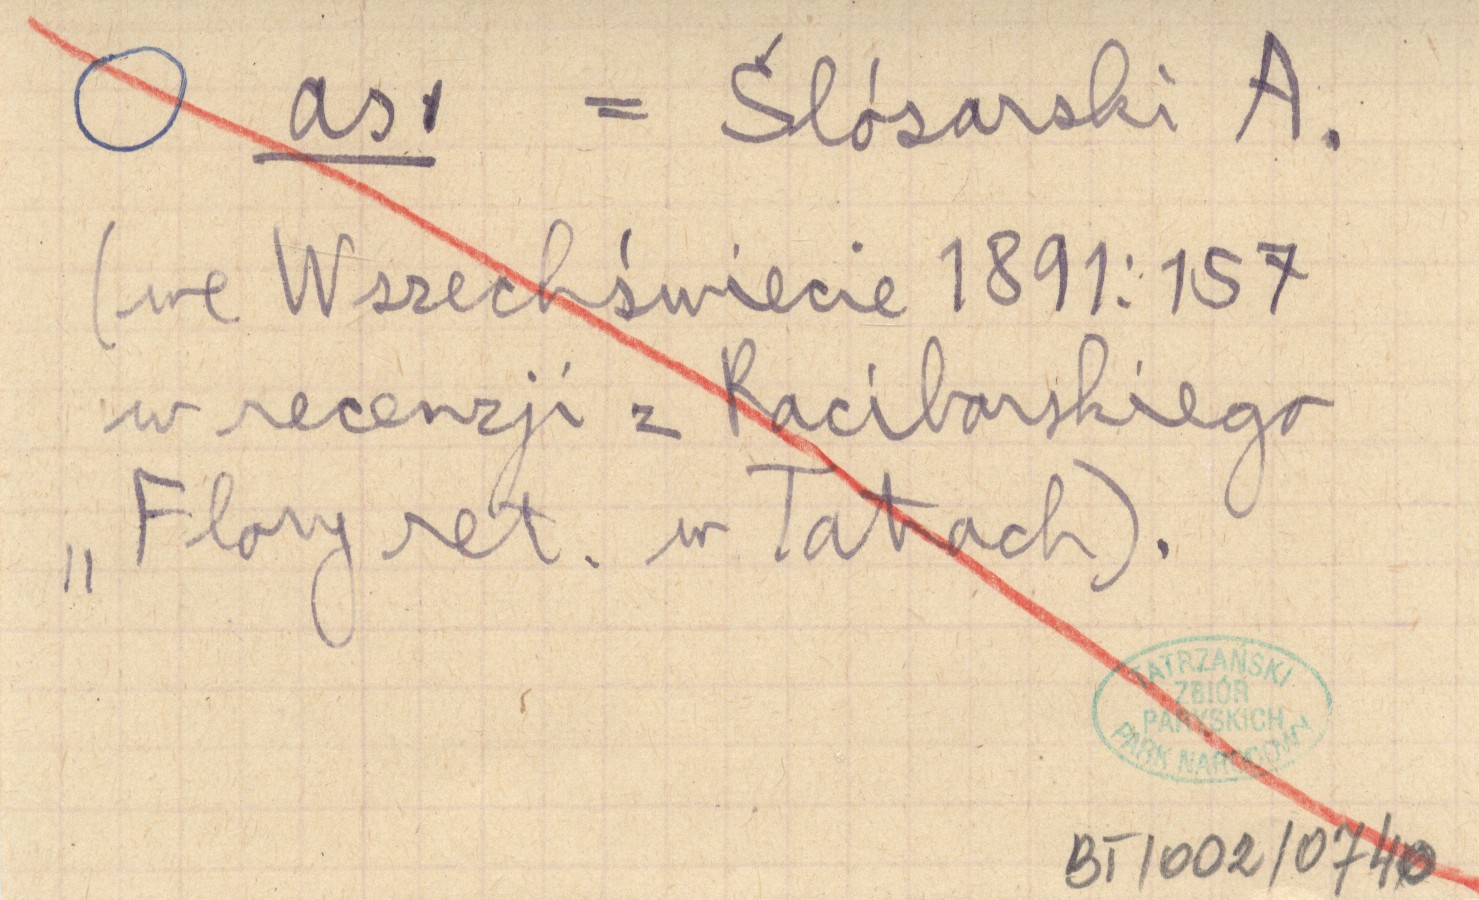 as, = Ślósarski A.
(we Wszechświecie 1891:157
w recenzji z Raciborskiego
„Flory ret. w Tatrach).
TATRZAŃSKI
ZBIÓR
PARYSKICH
PARK NARODOWY
BT/002/0740